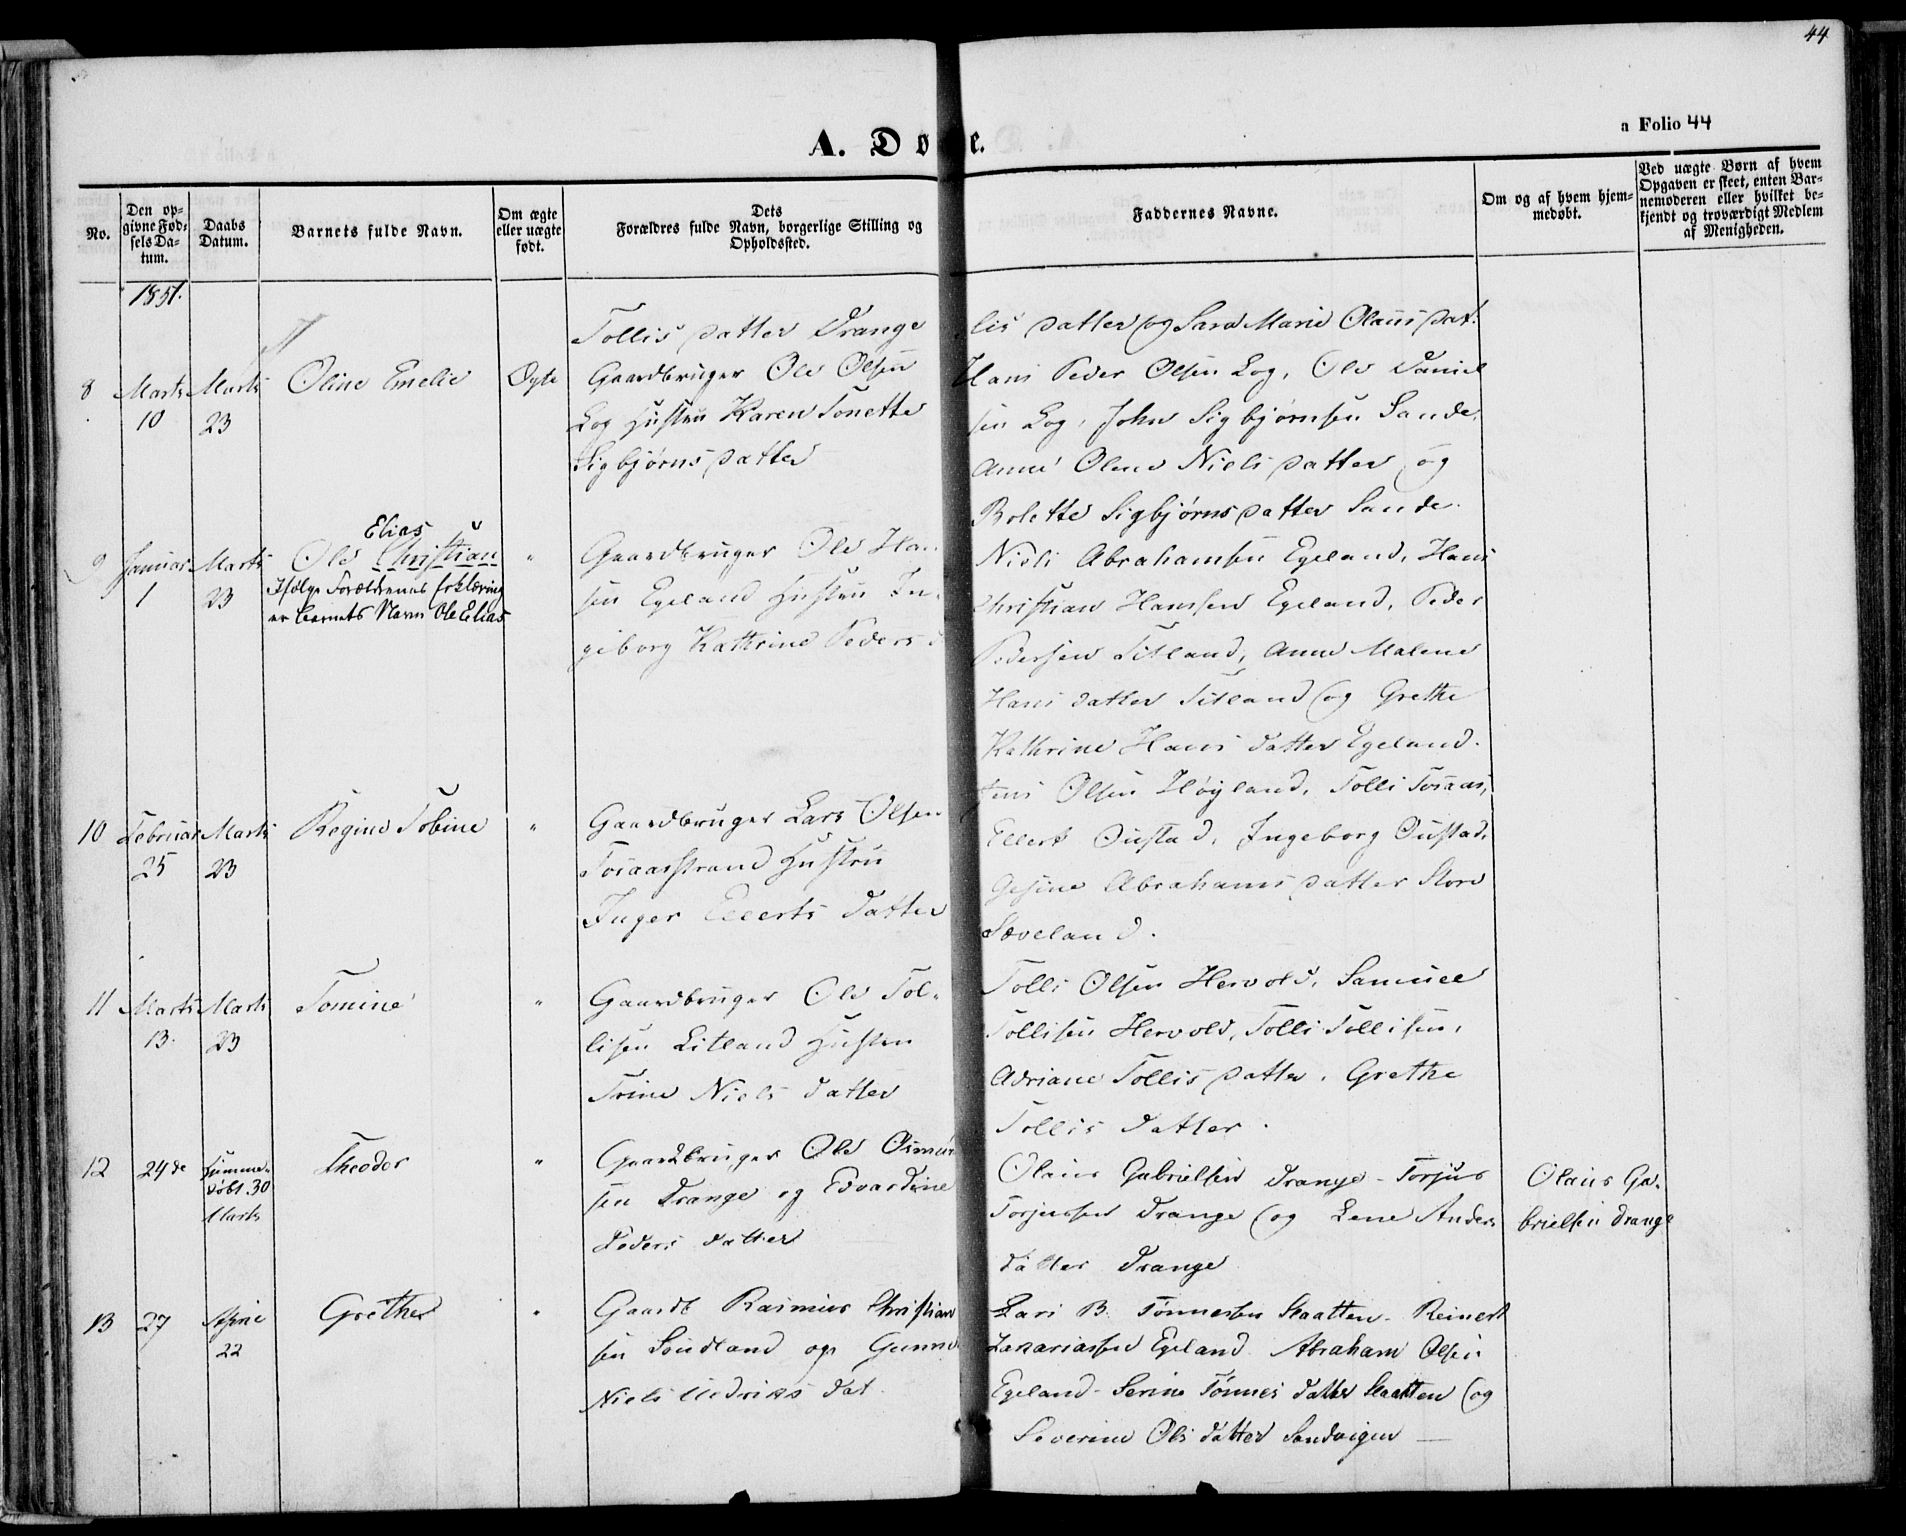 44
a Folio 44
A. Døbte.
No.
Den opgivne Fødsels Datum.
Daabs Datum.
Barnets fulde Navn.
Om ægte eller uægte født.
Dets Forældres fulde Navn, borgerlige Stilling og Opholdssted.
Faddernes Navne.
Om og af hvem hjemmedøbt.
Ved uægte Børn af hvem Opgaven er skeet, enten Barnemoderen eller hvilket bekjendt og troværdigt Medlem af Menigheden.
1851.
Tollis datter Drange
lis datter og Sara Marie Olausdat.
8 Marts 10
Marts 23
Oline Emelie
Ægte
Gaardbruger Ole Olsen
Log Hustru Karen Tonette
Sigbjørns datter
Hans Peder Olsen Log, Ole Daniel
sen Log, John Sigbjørnsen Sande,
Anne Olene Niels datter og
Bolette Sigbjørns datter Sande.
9 Januar 1
Marts 23
Elias
Ole Christian
Ifølge Forældrenes forklaring
er barnets Navn Ole Elias
"
Gaardbruger Ole Han
sen Egeland Hustru In-
geborg Kathrine Peders d
Niels Abrahamsen Egeland, Hans
Christian Hansen Egeland, Peder
Pedersen Titland, Anne Malene
Hans datter Titland og Grethe
Kathrine Hans datter Egeland.
10 Februar 25
Marts 23
Regine Tobine
"
Gaardbruger Lars Olsen
Tosaasstrand Hustru
Inger Ellerts datter
Jens Olsen Høyland, Tolli Tosaas,
Ellert Oustad, Ingeborg Oustad,
Gesine Abrahams datter Store
Sæveland.
11 Marts 13.
Marts 23
Tomine
"
Gaardbruger Ole Tol-
lisen Litland Hustru
Trine Niels datter
Tolli Olsen Hervold, Samuel
Tollisen Hervold, Tolli Tollisen,
Adriane Tollis datter, Grethe
Tollis datter.
12 24de
Hjemme-
døbt 30
Marts
Theodor
"
Gaardbruger Ole Osmun
sen Drange og Edvardine
Peders datter
Olaus Gabrielsen Drange - Torjus
Torjussen Drange og Lene Anders
datter Drange
Olaus Ga-
brielsen Drange
13 27
April
22
Grethe
"
Gaardb Rasmus Christian
sen Soudland og Gunne
Niels Uldriks dat
Lars B. Tønnessen Skaatten - Reinert
Zakariassen Egeland Abraham Olsen
Egeland - Serine Tønnes datter Skaatten og
Severine Ols datter Sandvigen —